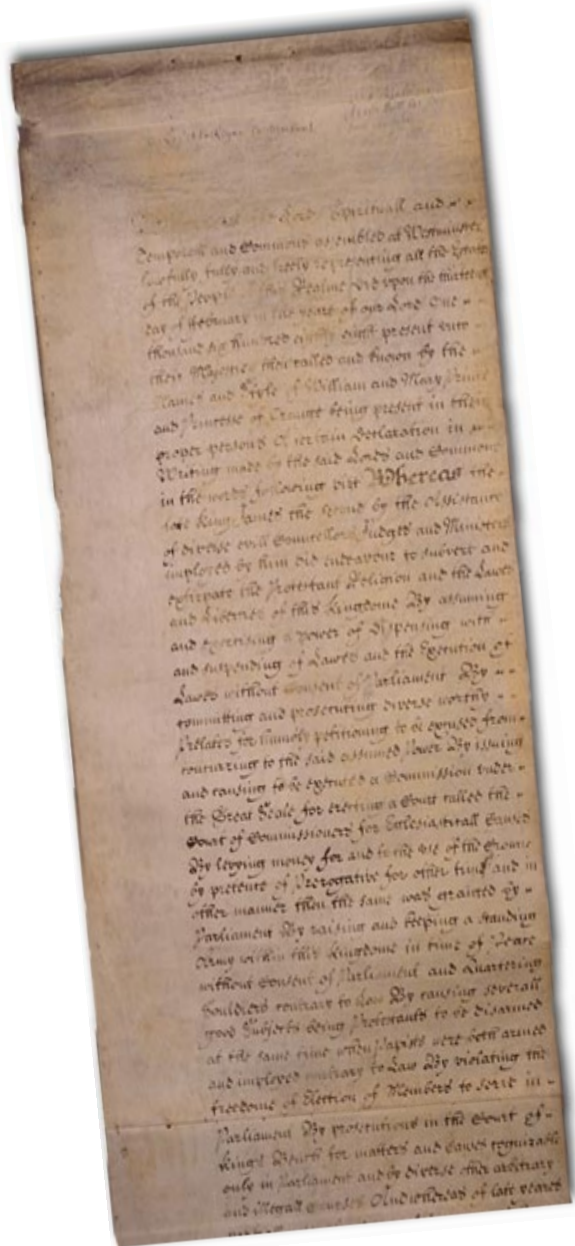 Lords Spirituall and
Temporall and Commons assembled at Westminster
lawfully fully and freely representing all the Estates
of the People of this Realme did upon the thirteenth
day of February in the yeare of our Lord One
thousand six hundred eighty eight present unto
their Majesties then called and known by the
Names and Stile of William and Mary Prince
and Princesse of Orange being present in their
proper persons A certain Declaration in
Writing made by the said Lords and Commons
in the words following vizt Whereas the
late King James the second by the Assistance
of diverse evill Councellors Judges and Ministers
imployed by him did endeavour to subvert and
extirpate the Protestant Religion and the Lawes
and Liberties of this Kingdome By assuming
and exercising a power of dispensing with
and suspending of Lawes and the Execution of
Lawes without Consent of Parliament By
committing and prosecuting diverse worthy
Prelates for humbly petitioning to be excused from
concurring to the said assumed Power By issuing
and causing to be executed a Commission under
the Great Seale for erecting a Court called the
Court of Commissioners for Ecclesiasticall Causes
By levying money for and to the use of the Crowne
by pretence of Prerogative for other time and in
other manner then the same was granted by
Parliament By raising and keeping a standing
Army within this Kingdome in time of Peace
without Consent of Parliament and Quartering
Souldiers contrary to Law By causing severall
good Subjects being Protestants to be disarmed
at the same time when Papists were both armed
and imployed contrary to Law By violating the
freedome of Election of Members to serve in
Parliament By prosecutions in the Court of
Kings Bench for matters and Causes cognizable
only in Parliament and by diverse other arbitrary
and illegall courses And whereas of late yeares